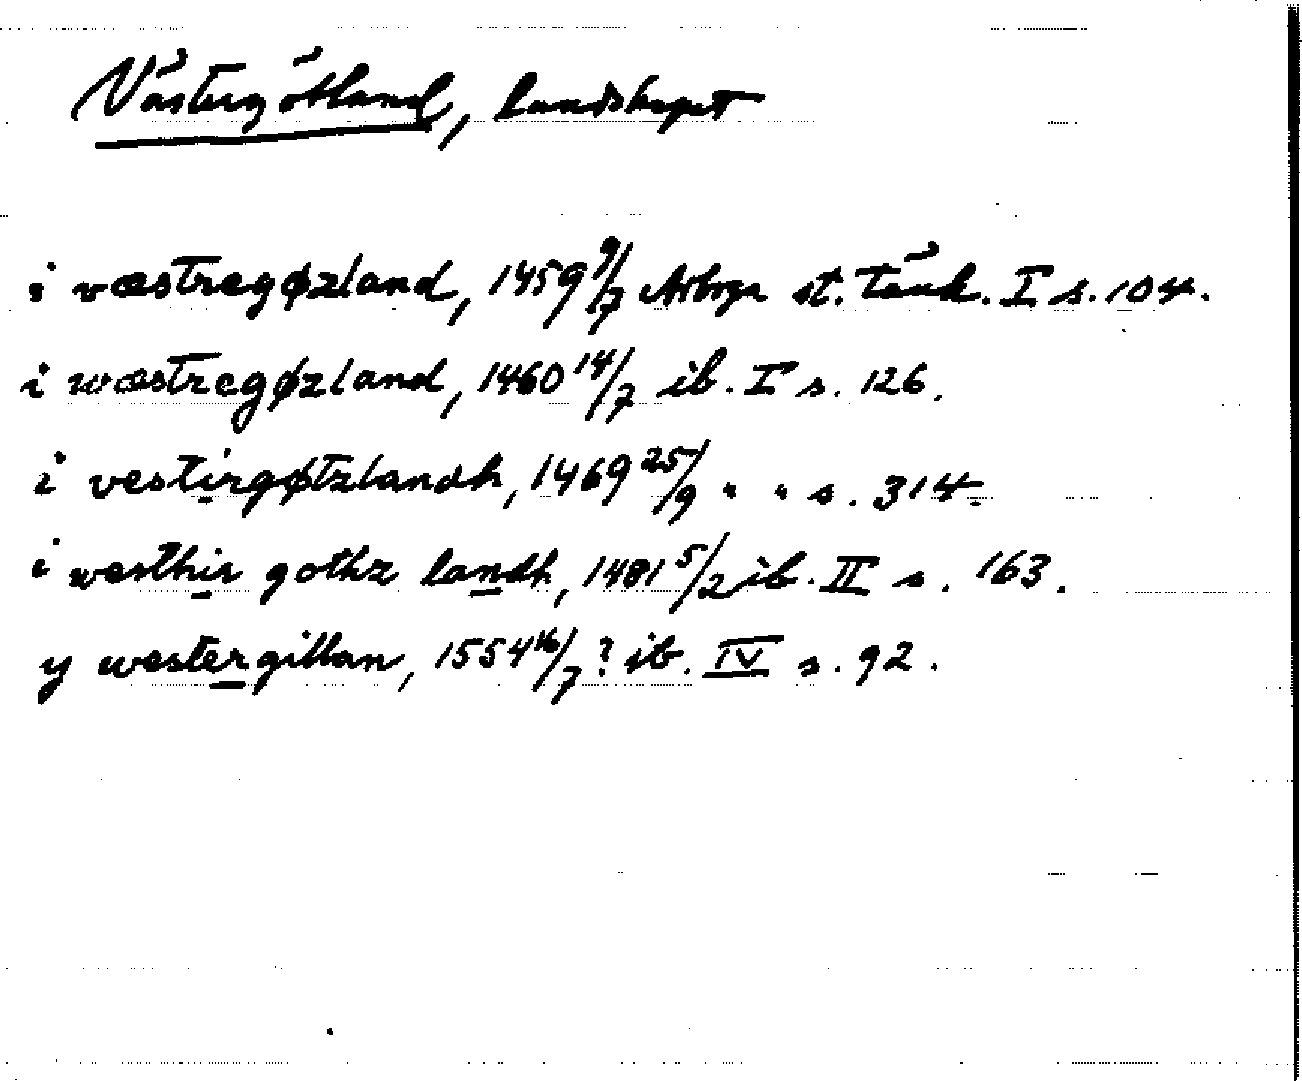 Västergötland, landskapet
i væstregøzland, 1459 9/7 Arboga st. tänk. I s. 104.
i wæstregøzland, 1460 14/7 ib. I s. 126.
i vestirgøtzlandh, 1469 25/9 " " s. 314.
i westhir gothz landh, 1481 5/2 ib. II s. 163.
y westergillan, 1554 16/7 ? ib. IV s. 92.